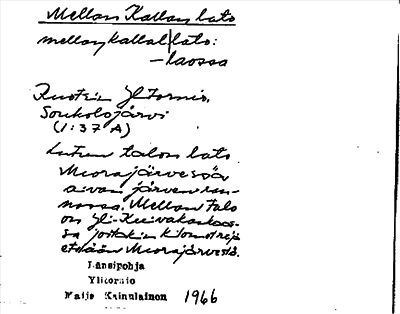 Mellan Kallan lato
mellaŋkallal|lato:
–laossa
Ruotsin Ylitornio,
Soukolojärvi
(1:37 A)
talon lato
Muorajärvessä
aivan järven ran-
nassa. Mellan talo
on Yli-Kuivakankaas-
sa joitakin kilometrejä
etelään Muorajärvestä.
Länsipohja
Ylitornio
Maija Kainulainen 1966